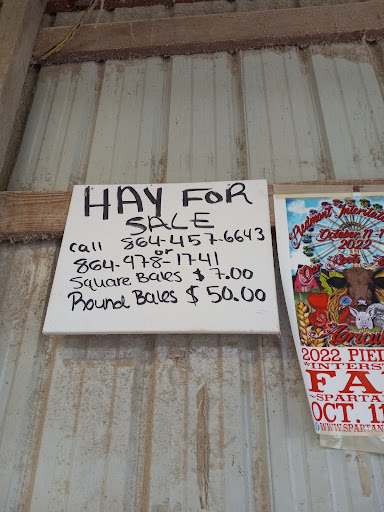 HAY FOR
SALE
call 864-457-6643
or
864-978-1741
Square Bales $7.00
Round Bales $50.00
Piedmont Interstate
October 11-1
2022
2022 PIED
"INTERST
FA
~SPARTA
OCT. 11
WWW.SPARTAN